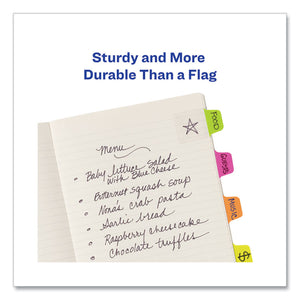 Sturdy and More
Durable Than a Flag
Menu
Baby lettuce Salad
with Blue Cheese
Butternut squash soup
Nona's crab pasta
Garlic bread
Raspberry cheesecake
Chocolate truffles
Food
Music
$